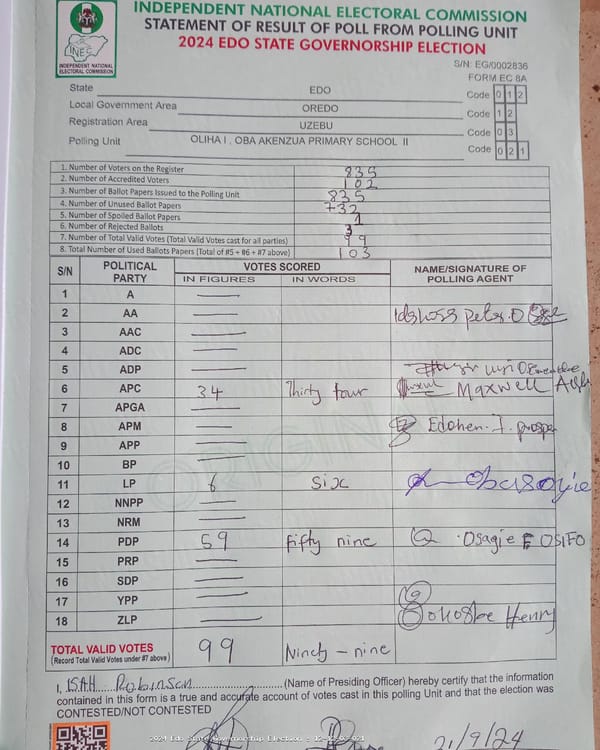 INDEPENDENT NATIONAL ELECTORAL COMMISSION
STATEMENT OF RESULT OF POLL FROM POLLING UNIT
2024 EDO STATE GOVERNORSHIP ELECTION
INEC
INDEPENDENT NATIONAL
ELECTORAL COMMISSION
S/N: EG/0002836
FORM EC 8A
State EDO Code 0 1 2
Local Government Area OREDO Code 1 2
Registration Area UZEBU Code 0 3
Polling Unit OLIHA I , OBA AKENZUA PRIMARY SCHOOL II Code 0 2 1
1. Number of Voters on the Register 835
2. Number of Accredited Voters 102
3. Number of Ballot Papers Issued to the Polling Unit 835
4. Number of Unused Ballot Papers 732
5. Number of Spoiled Ballot Papers 1
6. Number of Rejected Ballots 3
7. Number of Total Valid Votes (Total Valid Votes cast for all parties) 99
8. Total Number of Used Ballots Papers (Total of #5 + #6 + #7 above) 103
S/N POLITICAL PARTY VOTES SCORED NAME/SIGNATURE OF POLLING AGENT
IN FIGURES IN WORDS
1 A
2 AA
3 AAC
4 ADC
5 ADP
6 APC 34 Thirty four Maxwell
7 APGA
8 APM Edohen . I . prosper
9 APP
10 BP
11 LP 6 Six
12 NNPP
13 NRM
14 PDP 59 fifty nine Osagie E OSIFO
15 PRP
16 SDP
17 YPP
18 ZLP Henry
TOTAL VALID VOTES 99 Ninety - nine
(Record Total Valid Votes under #7 above)
I, ISAH Robinson (Name of Presiding Officer) hereby certify that the information
contained in this form is a true and accurate account of votes cast in this polling Unit and that the election was
CONTESTED/NOT CONTESTED
21/9/24
ORIGINAL